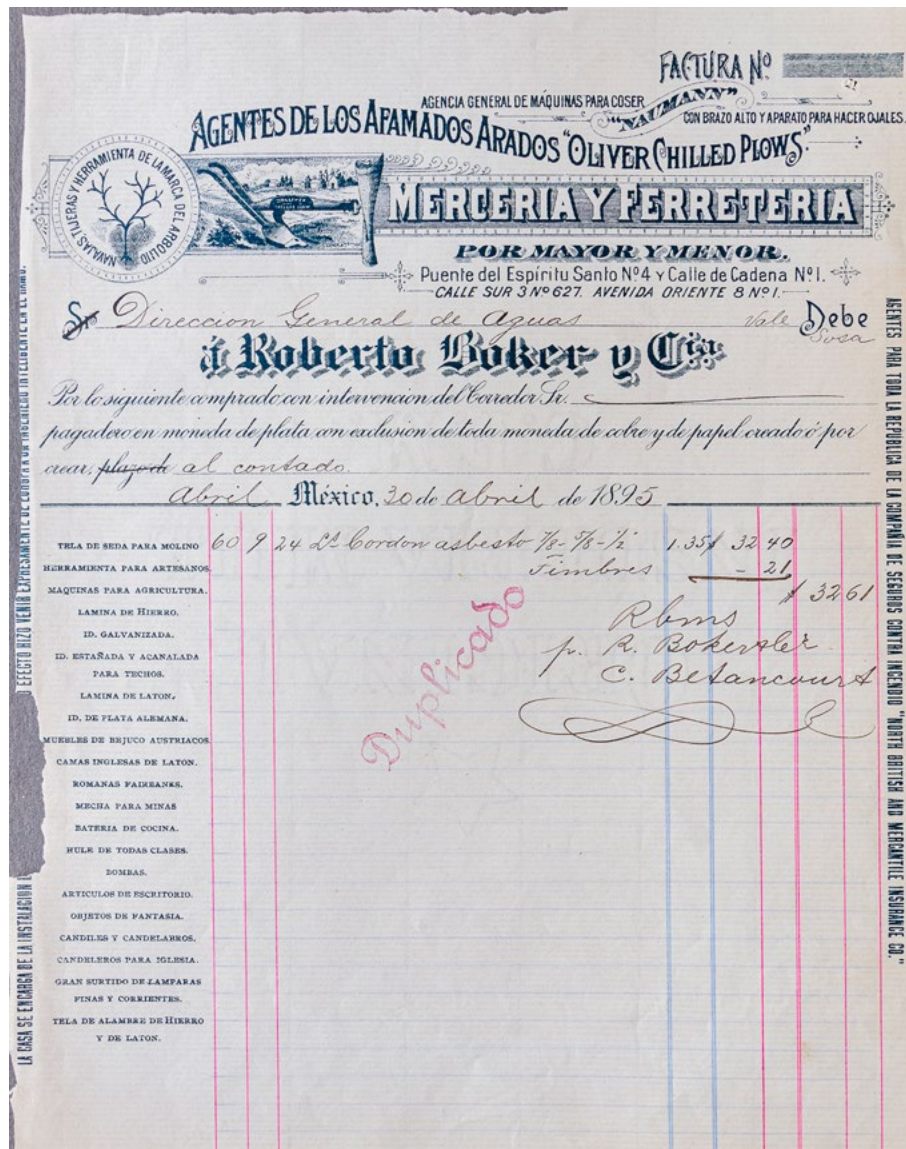 FACTURA Nº
AGENCIA GENERAL DE MÁQUINAS PARA COSER
"NAUMANN"
CON BRAZO ALTO Y APARATO PARA HACER OJALES.
AGENTES DE LOS AFAMADOS ARADOS "OLIVER CHILLED PLOWS".
NAVAJAS, TIJERAS Y HERRAMIENTA DE LA MARCA DEL ARBOLITO
MERCERIA Y FERRETERIA
POR MAYOR Y MENOR.
Puente del Espíritu Santo Nº4 y Calle de Cadena Nº1.
CALLE SUR 3 Nº 627. AVENIDA ORIENTE 8 Nº 1.
Sr Direccion General de Aguas Vale Debe
Sosa
á Roberto Boker y Cía.
Por lo siguiente comprado con intervencion del Corredor Sr.
pagadero en moneda de plata con exclusion de toda moneda de cobre y de papel creado ó por
crear, plazo de al contado.
Abril México, 30 de abril de 1895
TELA DE SEDA PARA MOLINO 60 9 24 Lb Cordon asbesto 7/8 - 5/8 - 1/2 1.35 $ 32 40
HERRAMIENTA PARA ARTESANOS. Timbres - 21
MAQUINAS PARA AGRICULTURA. $ 32 61
LAMINA DE HIERRO.
ID. GALVANIZADA.
ID. ESTAÑADA Y ACANALADA
PARA TECHOS.
LAMINA DE LATON.
ID. DE PLATA ALEMANA.
MUEBLES DE BEJUCO AUSTRIACOS.
CAMAS INGLESAS DE LATON.
ROMANAS FAIRBANKS.
MECHA PARA MINAS
BATERIA DE COCINA.
HULE DE TODAS CLASES.
BOMBAS.
ARTICULOS DE ESCRITORIO.
OBJETOS DE FANTASIA.
CANDILES Y CANDELABROS.
CANDELEROS PARA IGLESIA.
GRAN SURTIDO DE LAMPARAS
FINAS Y CORRIENTES.
TELA DE ALAMBRE DE HIERRO
Y DE LATON.
p. R. Boker
C. Betancourt
Duplicado
LA CASA SE ENCARGA DE LA INSTALACION
EFECTO HIZO VENIR EXPRESAMENTE DE
AGENTES PARA TODA LA REPUBLICA DE LA COMPAÑIA DE SEGUROS CONTRA INCENDIO "NORTH BRITISH AND MERCANTILE INSURANCE CO."